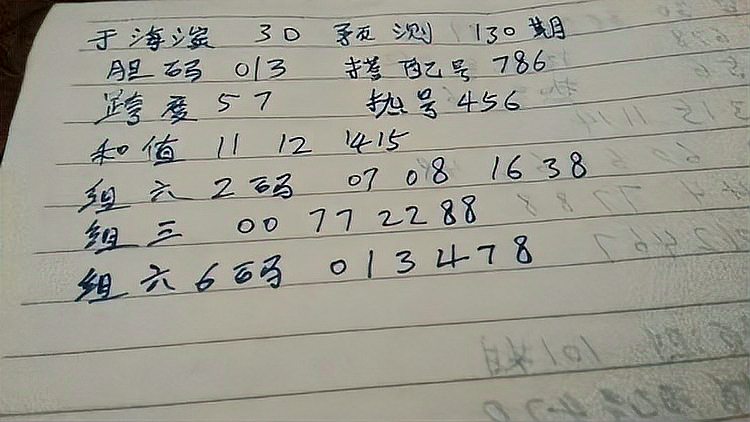 于海滨 3D 预测 130期
胆码 013 搭配号 786
跨度 57 热号 456
和值 11 12 1415
组六2码 07 08 16 38
组三 00 77 22 88
组六6码 013478